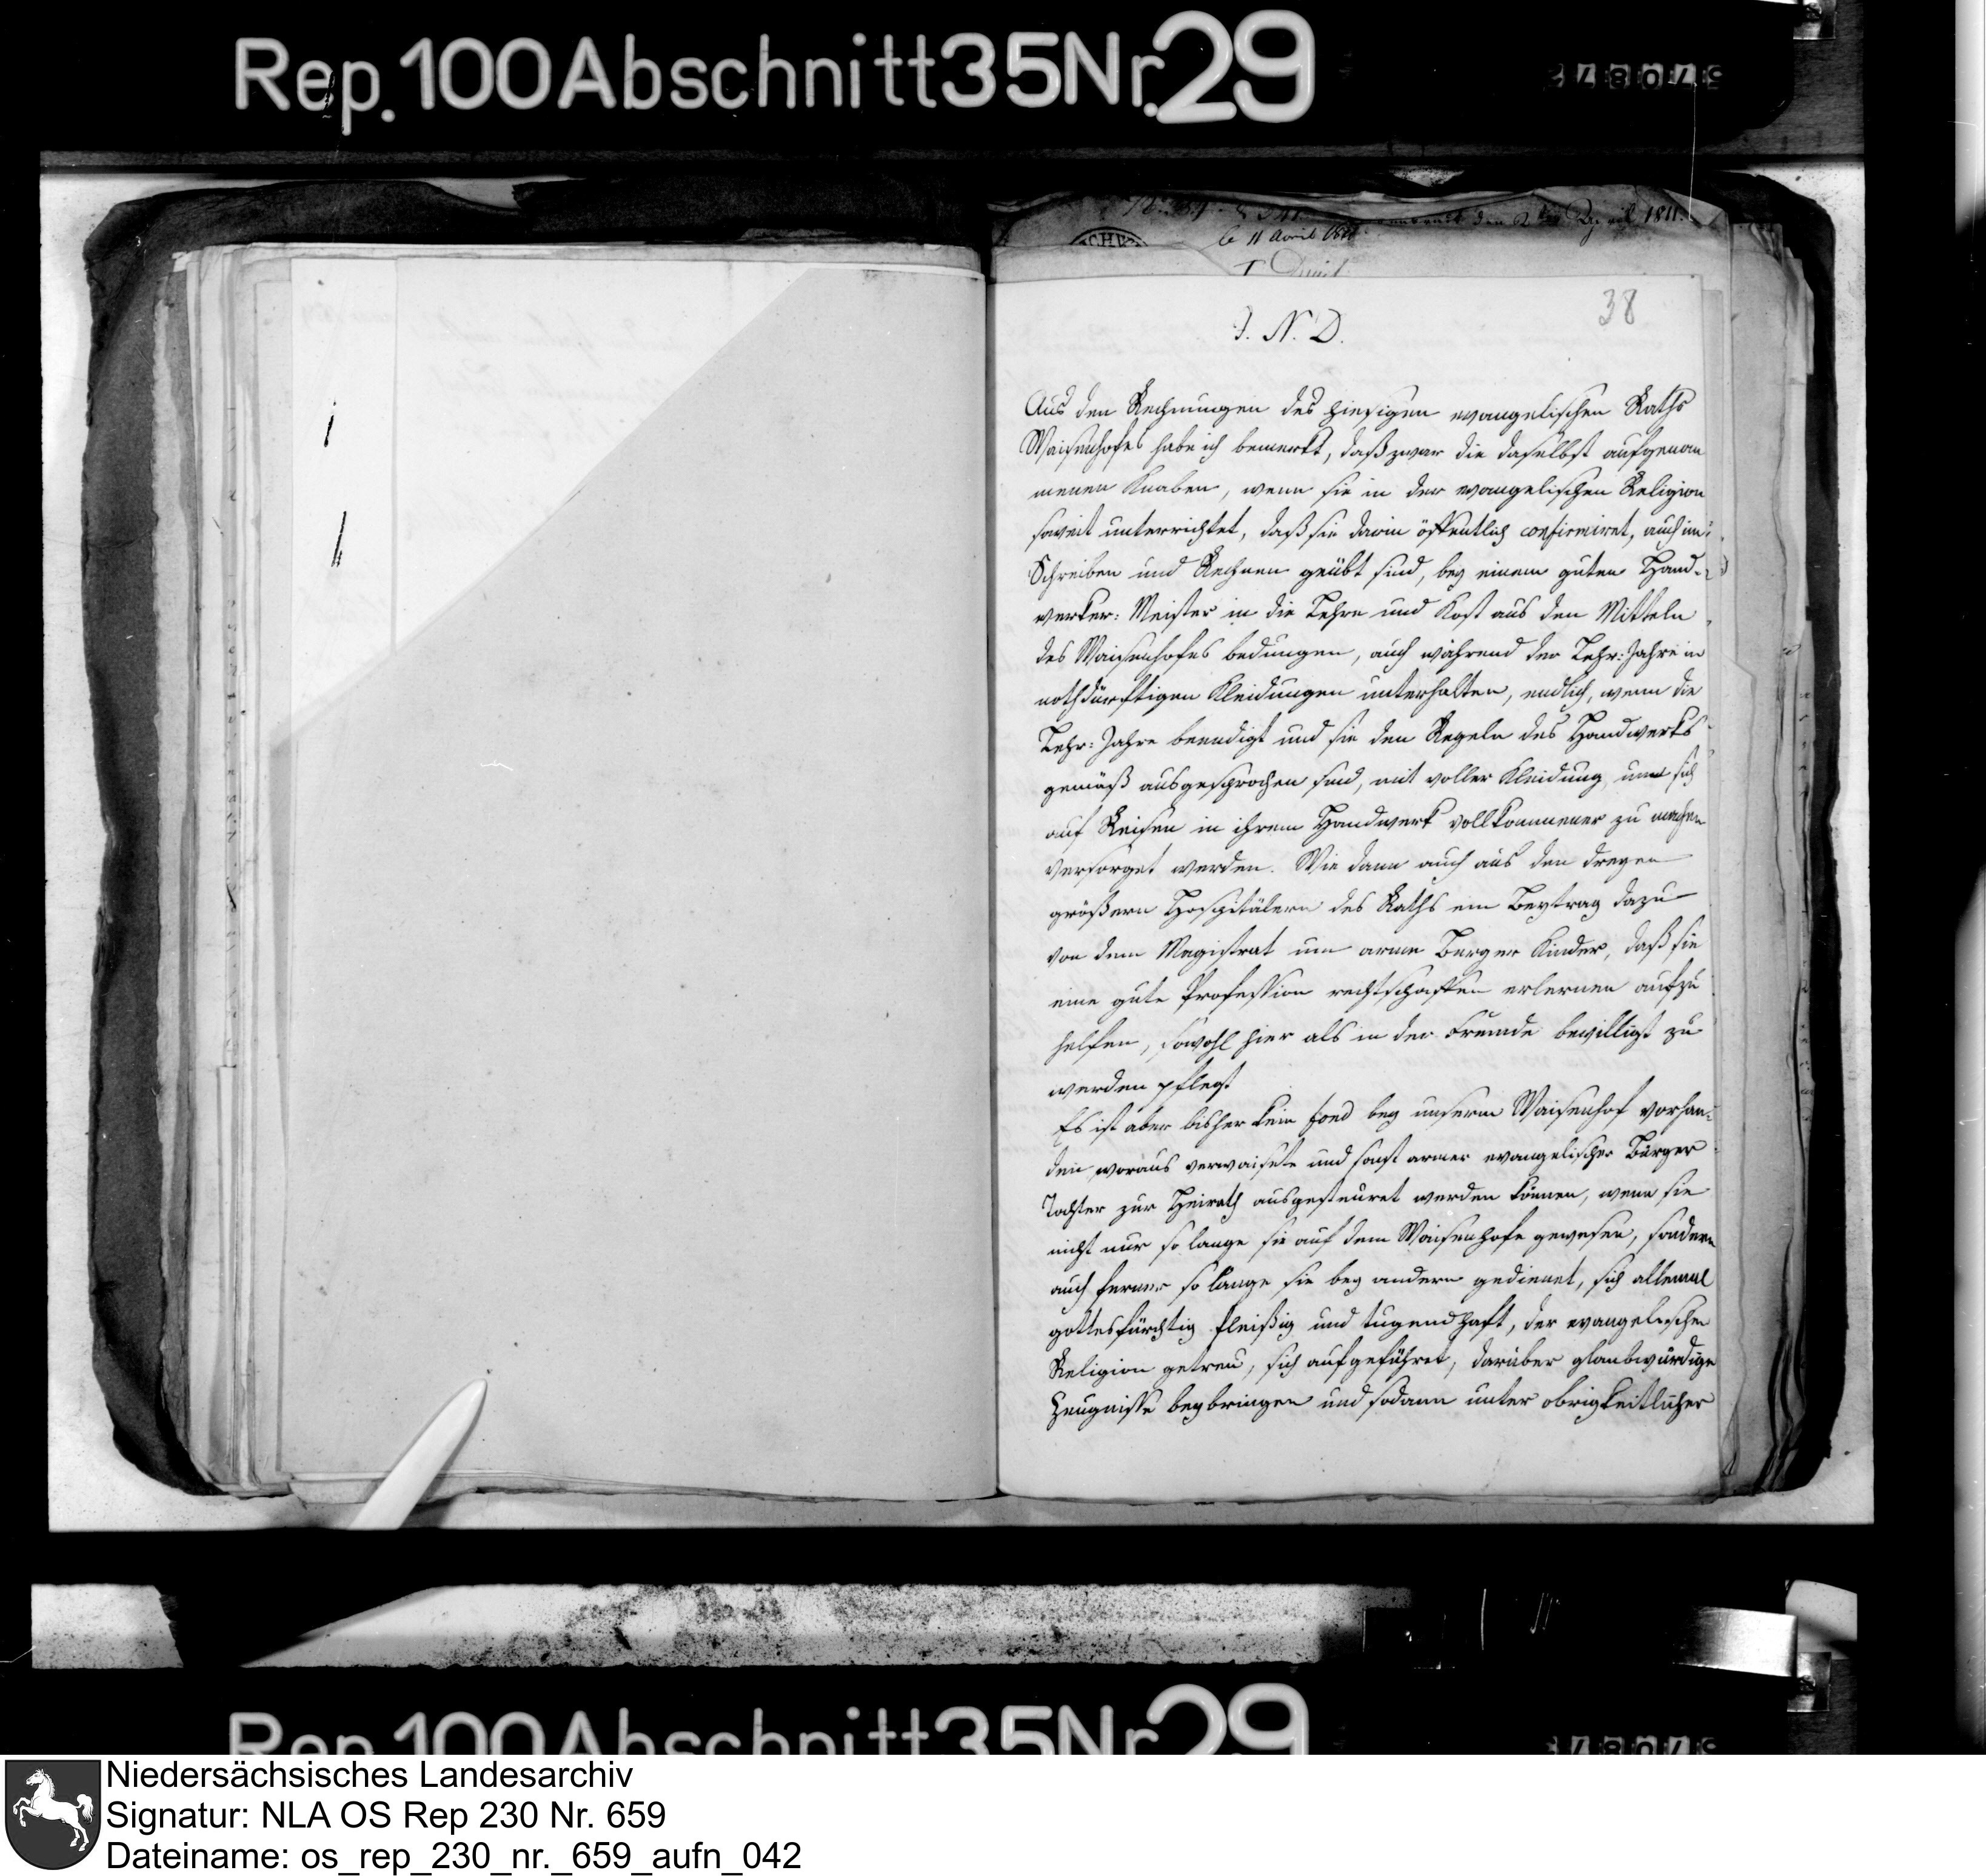 Rep. 100 Abschnitt 35 Nr. 29
le 11 Avril
den 2ten April 1811.
38
J. N. D.
Aus den Rechnungen des hiesigen evangelischen Raths
Waisenhofes habe ich bemerkt, daß zwar die daselbst aufgenom
menen Knaben, wenn sie in der evangelischen Religion
soweit unterrichtet, daß sie darin öffentlich confirmiret, auch im
Schreiben und Rechnen geübt sind, bey einem guten Hand-
werker-Meister in die Lehre und Kost aus den Mitteln
des Waisenhofes bedungen, auch während der Lehr-Jahre in
nothdürftigen Kleidungen unterhalten, endlich, wenn die
Lehr-Jahre beendigt und sie den Regeln des Handwerks
gemäß ausgesprochen sind, mit voller Kleidung um sich
auf Reisen in ihrem Handwerk vollkommener zu machen
versorget werden. Wie dann auch aus den dreyen
größern Hospitälern des Raths ein Beytrag dazu
von dem Magistrat um arme Burger Kinder, daß sie
eine gute Profession rechtschaffen erlernen aufzu
helfen, sowohl hier als in der Fremde bewilligt zu
werden pflegt
Es ist aber bisher kein fond bey unserm Waisenhof vorhan-
den woraus verwaisete und sonst armer evangelischer Bürger
Tochter zur Heirath ausgesteuret werden können, wenn sie
nicht nur so lange sie auf dem Waisenhofe gewesen, sondern
auch ferner so lange sie bey andern gedienet, sich allemal
gottesfürchtig fleißig und tugendhaft, der evangelischen
Religion getreu, sich aufgeführet, darüber glaubwürdige
Zeugnisse beybringen und sodann unter obrigkeitlicher
Rep. 100 Abschnitt 35 Nr. 29
Niedersächsisches Landesarchiv
Signatur: NLA OS Rep 230 Nr. 659
Dateiname: os_rep_230_nr._659_aufn_042